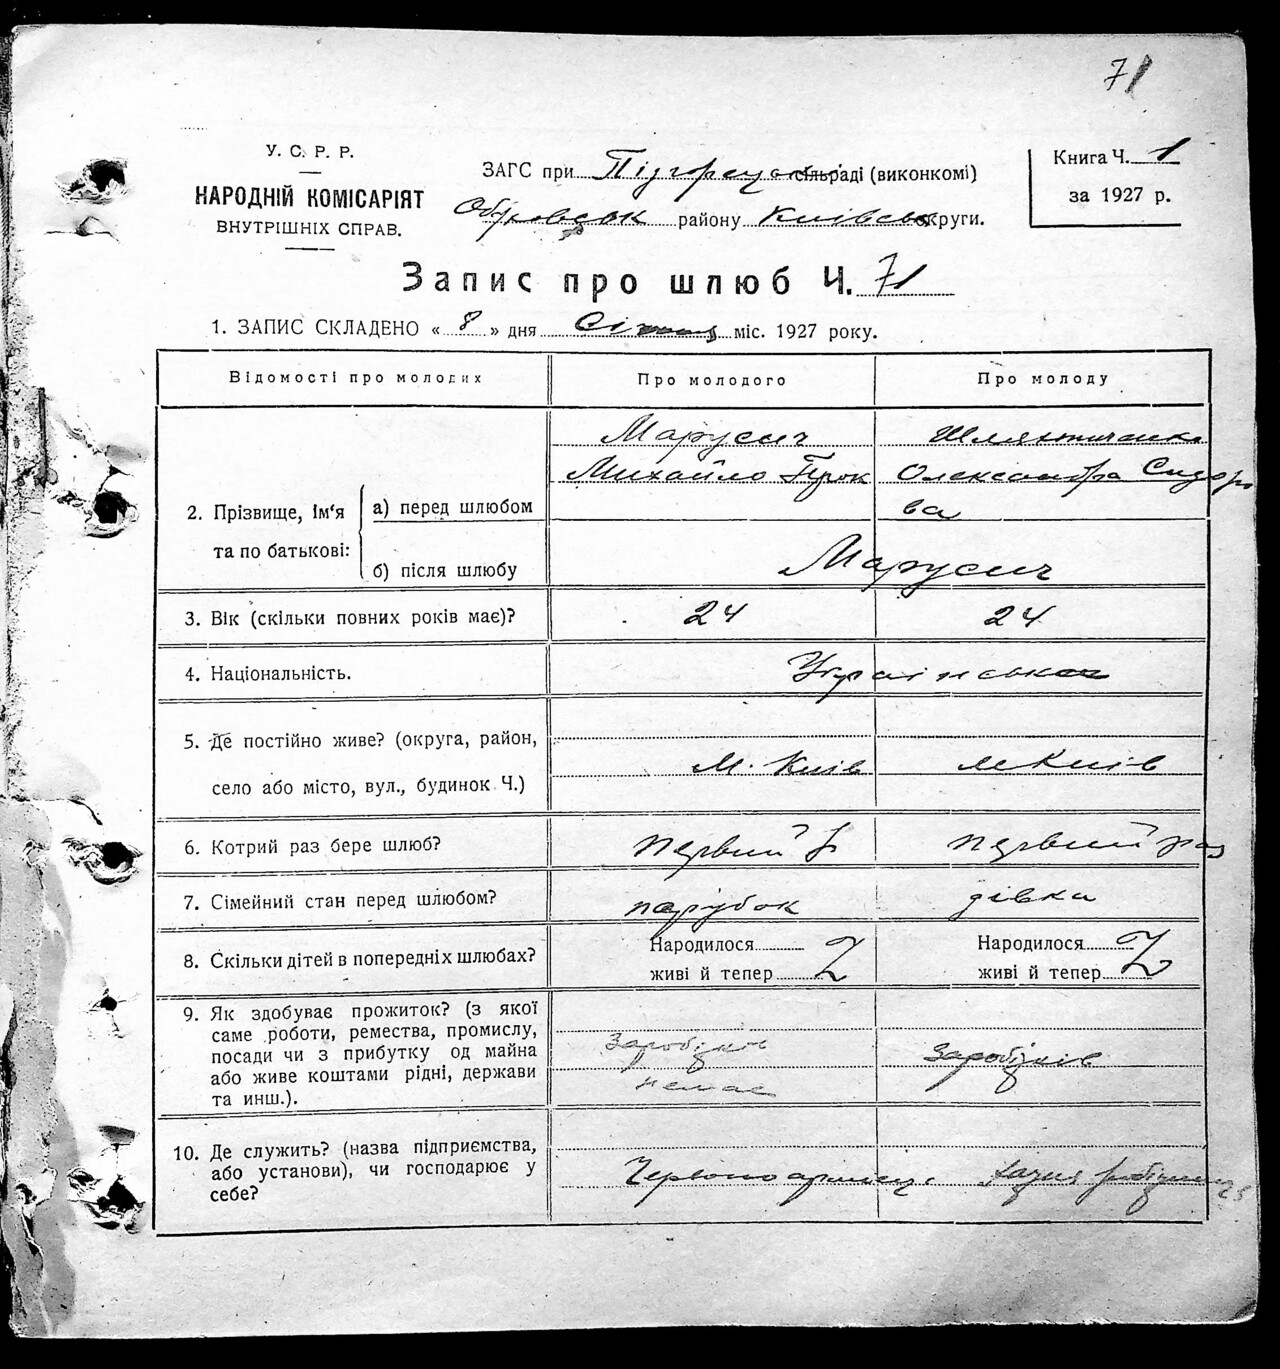 71
У. С. Р. Р.
НАРОДНІЙ КОМІСАРІЯТ
ВНУТРІШНІХ СПРАВ.
ЗАГС при Підгорецк сільраді (виконкомі)
району Київськ округи.
Книга Ч. 1
за 1927 р.
Запис про шлюб Ч. 71
1. ЗАПИС СКЛАДЕНО « 8 » дня Січня міс. 1927 року.
Відомості про молодих
Про молодого
Про молоду
2. Прізвище, ім‘я
та по батькові:
а) перед шлюбом
Марусич
Михайло Прок
Олександра Сидоро
ва
б) після шлюбу
Марусич
3. Вік (скільки повних років має)?
24
24
4. Національність.
Українська
5. Де постійно живе? (округа, район,
село або місто, вул., будинок Ч.)
м. Київ
м Київ
6. Котрий раз бере шлюб?
первий р
первий раз
7. Сімейний стан перед шлюбом?
парубок
дівка
8. Скільки дітей в попередніх шлюбах?
Народилося
живі й тепер
Z
Народилося
живі й тепер
Z
9. Як здобуває прожиток? (з якої
саме роботи, ремества, промислу,
посади чи з прибутку од майна
або живе коштами рідні, держави
та инш.).
Заробітків
немає
Заробітків
10. Де служить? (назва підприємства,
або установи), чи господарює у
себе?
Червоноармієць